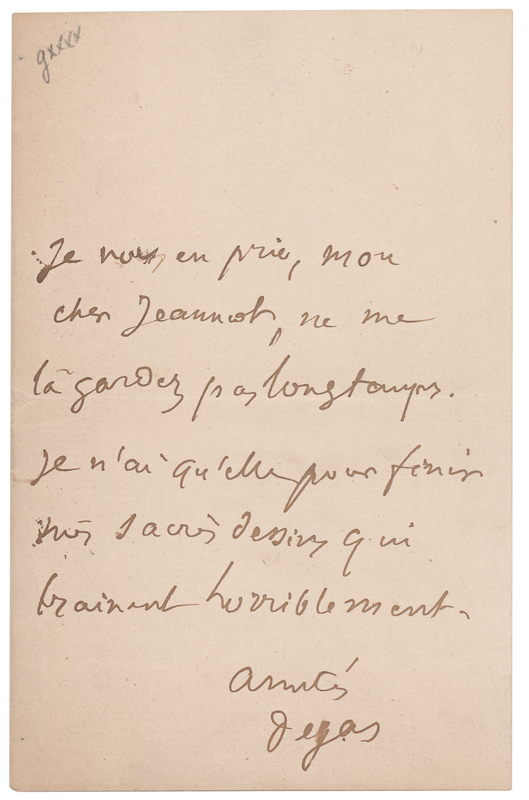 gxxxx
Je vous en prie, mon
cher Jeannot, ne me
la gardez pas longtemps.
Je n'ai qu'elle pour finir
mes sacrés dessins qui
trainent horriblement.
Amitiés
Degas